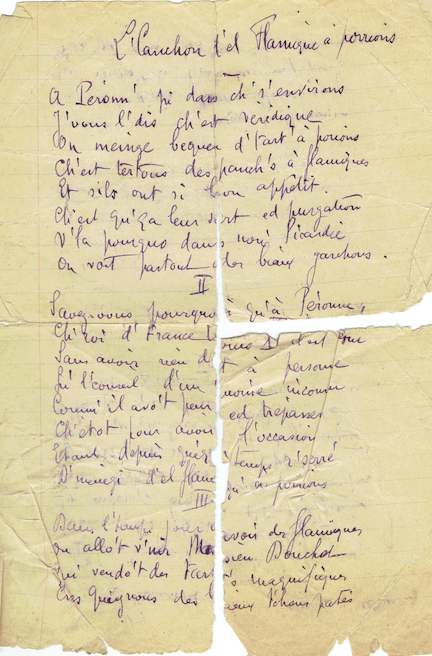 L'Canchon d'el Flamique à porions
A Péronn' pi dans ch's environs
J'vous l'dis ch'est véridique
On meinge bequeu d'tart' à porions
Ch'est tertous des panch's à flamiques
Et s'ils ont si bon appétit.
Ch'est qu'ça leur sert ed purgation
V'la pourquo dans nous Picardie
On voit partout des biaux garchons.
II
Savez-vous pourquoi qu'à Péronne,
Ch'roi d' France Louis XI il est
Sans avoir rien dit à personne
Su l'conseil d'un moine inconnu
Comm' il avôt peur ed trépasser
Ch'étot pour avoir l'occasion
Etant depuis temps s'serré
D'meingi d'el flamique à porions
III
Dans l'temps pour avoir des flamiques
On allôt v'nir Monsieu Bouchot
Qui vendôt des tart's magnifiques
Des viaux pâtés